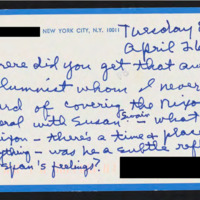 NEW YORK CITY, N.Y. 10011
Tuesday
April 26
ere did you get that
lumnist whom I never
rd of covering the
eral with Susan? what
ison - there's a time & place
ything - was he a subtle ref
span's feelings?